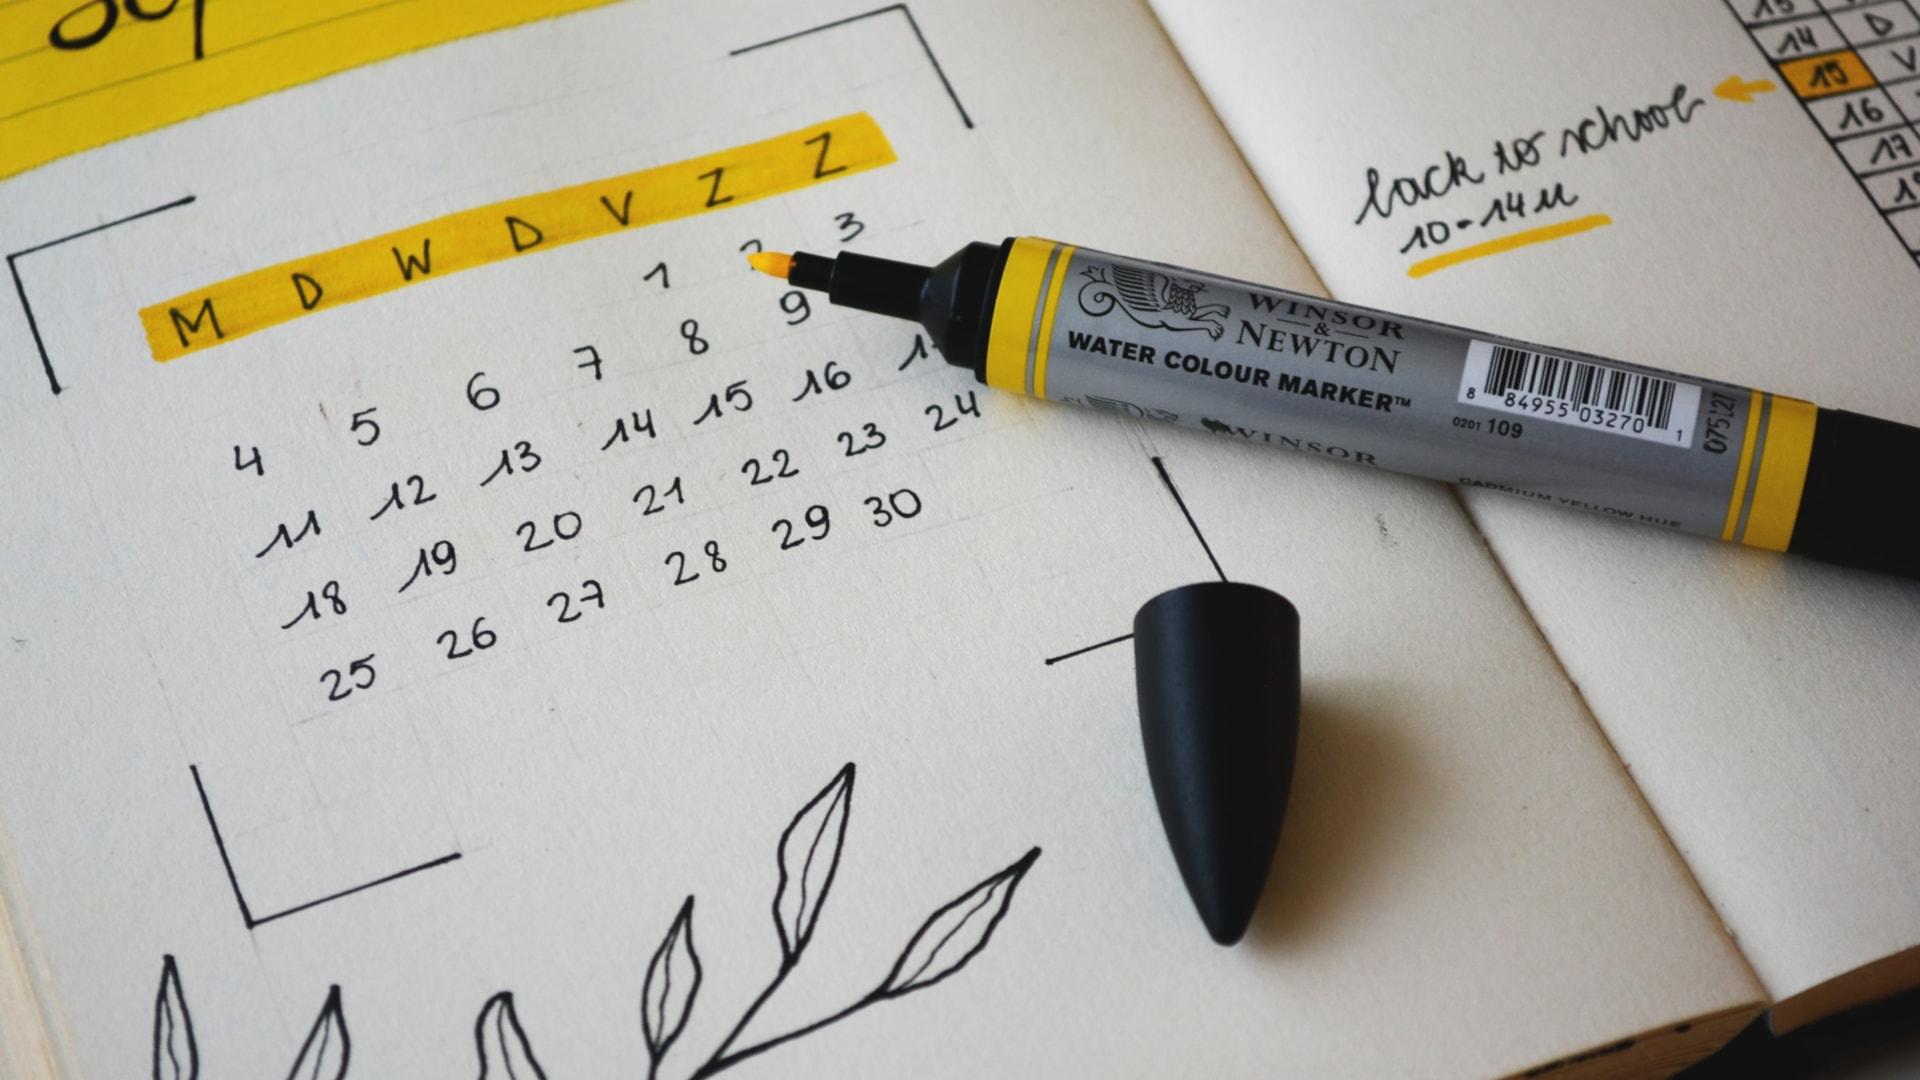 M D W D V Z Z
1 2 3
4 5 6 7 8 9
11 12 13 14 15 16
18 19 20 21 22 23 24
25 26 27 28 29 30
back to school
10-14u
13
14 D
15 V
16
17
WINSOR
&
NEWTON
WATER COLOUR MARKER™
8 84955 03270 1
0201 109
075'27
WINSOR
CADMIUM YELLOW HUE